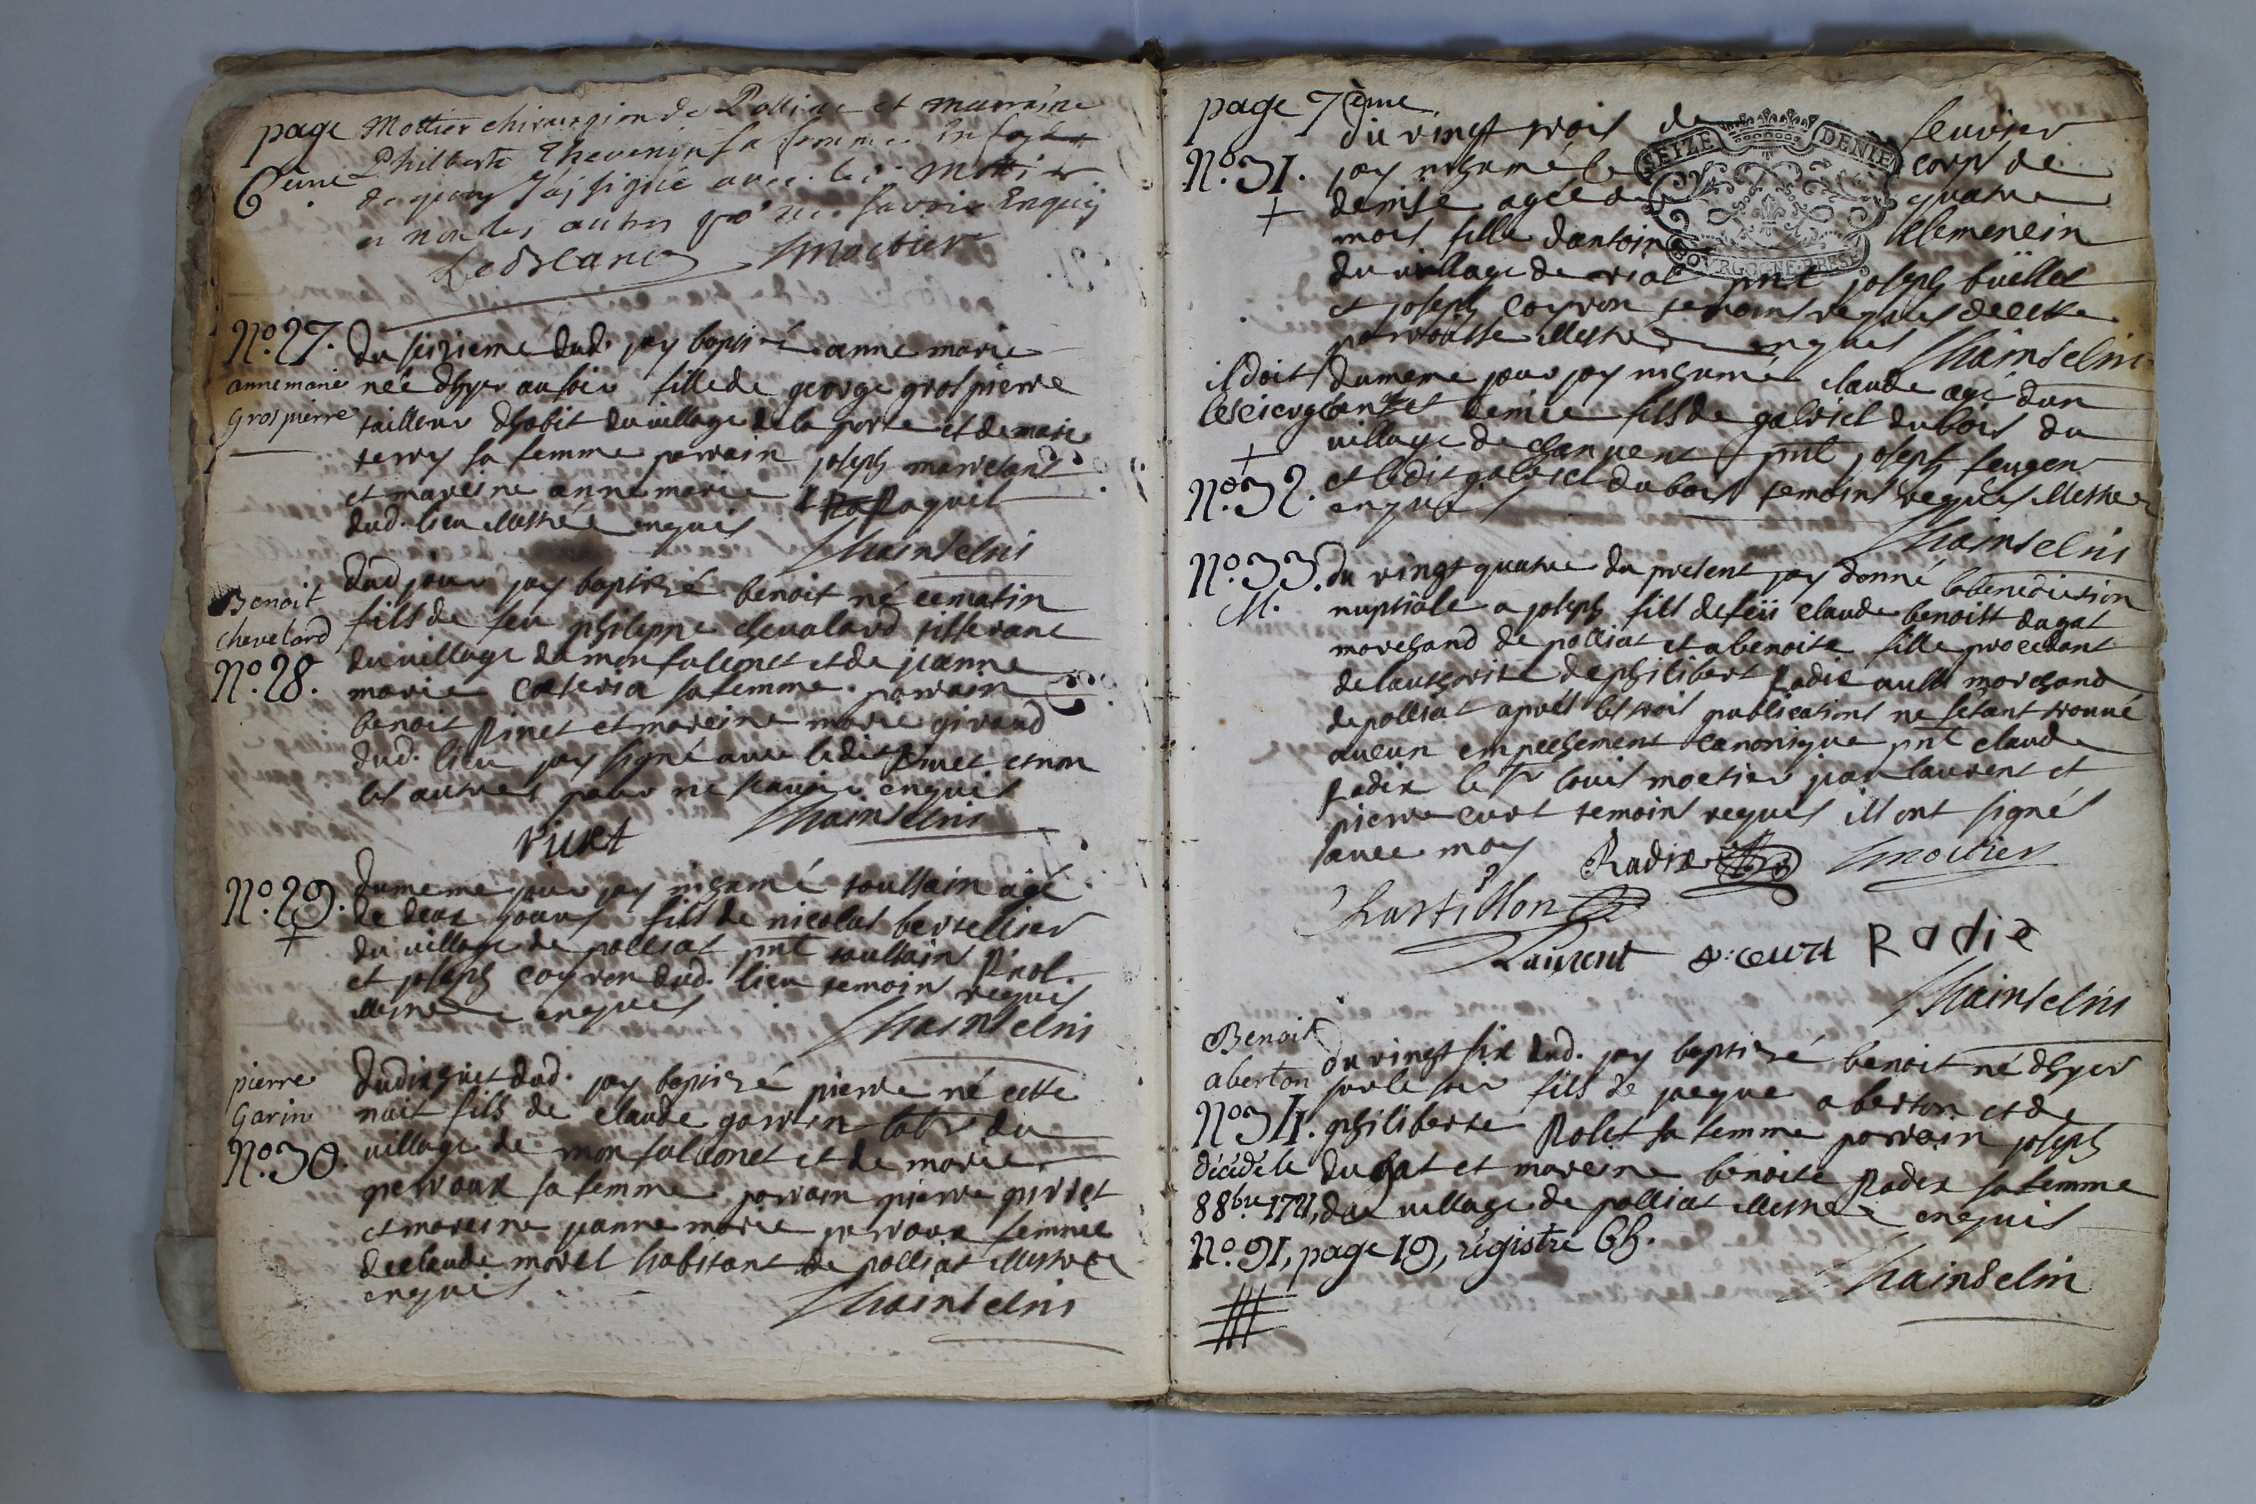 page 6eme
Mottier chirurgien de Polliat et marraine
Philberte Thevenin sa femme en foy
de quoy j'ay signé avec led. Mottier
et non les autres pour ne savoir Enquis
LeBlanc Moctier
No. 27.
anne marie
grospierre
du seizieme dud. jay baptisé anne marie
neé dhyer au soir fille de george grospierre
tailleur dhabit du village de la porte et de marie
terry sa femme parrain joseph marechant
et mareine anne marie paquet
dud. lieu illestrée enquis
Chainselin
Benoit
chevelard
No. 28.
Dud jour jay baptizé benoit né ce matin
fils de feu philippe chevalard tisserant
du village de monfalconet et de jeanne
marie sa femme parrain
benoit Pinet et mareine marie giraud
dud. lieu jay signé avec ledit Pinet et non
les autres pour ne scavoir enquis
Chainselin
Pinet
No. 29.
+
du meme jour jay inhumé toussain agé
de deux jours fils de nicolas bertellier
du village de polliat pnt toussain Pinol
et joseph coyron dud. lieu temoins requis
illestrée enquis
Chainselin
pierre
Garin
No. 30.
du dixhuit dud. jay baptizé pierre né cette
nuit fils de claude garrin labr du
village de monfalconet et de marie
perraux sa femme parrain pierre
et mareine jeanne marie perraux femme
de claude morel habitant de polliat illestrée
enquis
Chainselin
page 7ème
No. 31.
+
du vingt trois de feuvrier
SEIZE DENIE
BOURGOGNE·BRESSE
jay inhumé le corps de
denise ageé de quatre
mois fille dantoine Clemencin
du village de pnt joseph büellet
et joseph coyron temoins requis de cette
parroisse illestrée enquis
Chainselin
il doit
les cierges
+
No. 32.
du meme jour jay inhumé claude agé dun
an et demie fils de gabriel dubois du
village de pnt joseph feugeu
et ledit gabriel dubois temoins requis illestrée
enquis
Chainselin
No. 33.
M.
du vingt quatre du present jay donné la benediction
nuptiale a joseph fils de feü claude benoist dagat
marchand de polliat et a benoite fille procedant
de lauthorité de philibert Radix aussi marchand
de polliat apres les trois publications ne setant trouvé
aucun empechement canonique pnt claude
Radix le Sr louis moctier jean laurent et
pierre curt temoins requis ils ont signés
avec moy Radix Moctier
Chastillon
Laurent p. curt Radix
Chainselin
Benoit
aberton
No 34.
décédé le
8 8bre 1721,
No. 91, page 19, régistre 65.
du vingt six dud. jay baptizé benoit né dhyer
sur le soir fils de jacque aberton et de
philiberte Rolet sa femme parrain joseph
dugat et mareine benoite Radix sa femme
du village de polliat illestrée enquis
Chainselin